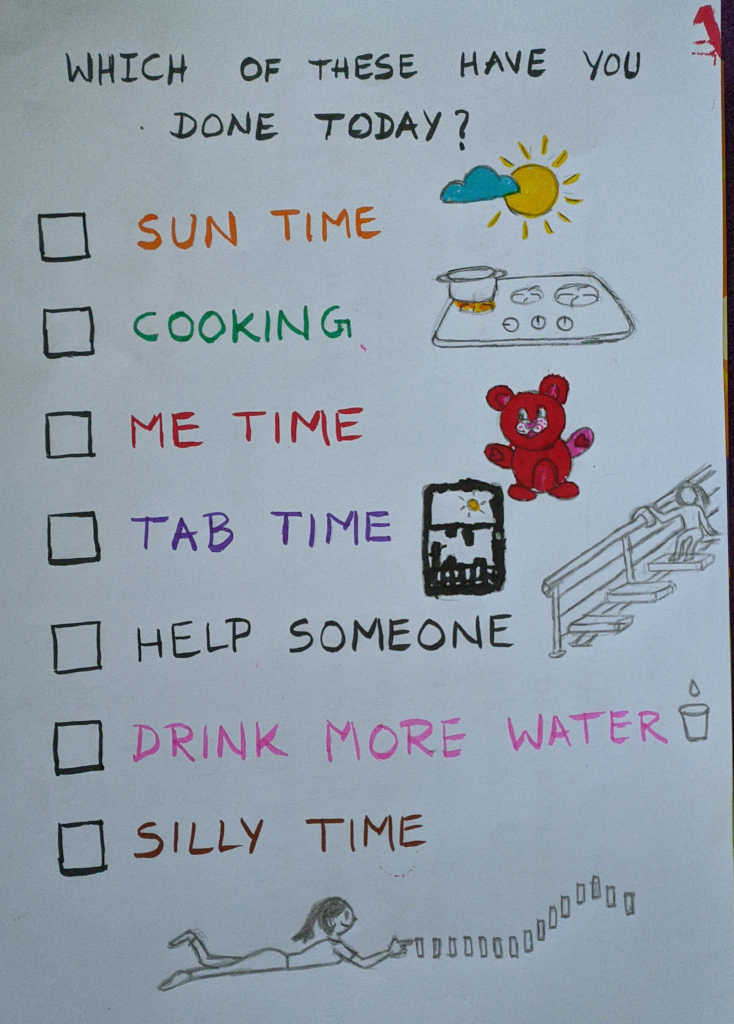 WHICH OF THESE HAVE YOU
DONE TODAY?
SUN TIME
COOKING
ME TIME
TAB TIME
HELP SOMEONE
DRINK MORE WATER
SILLY TIME